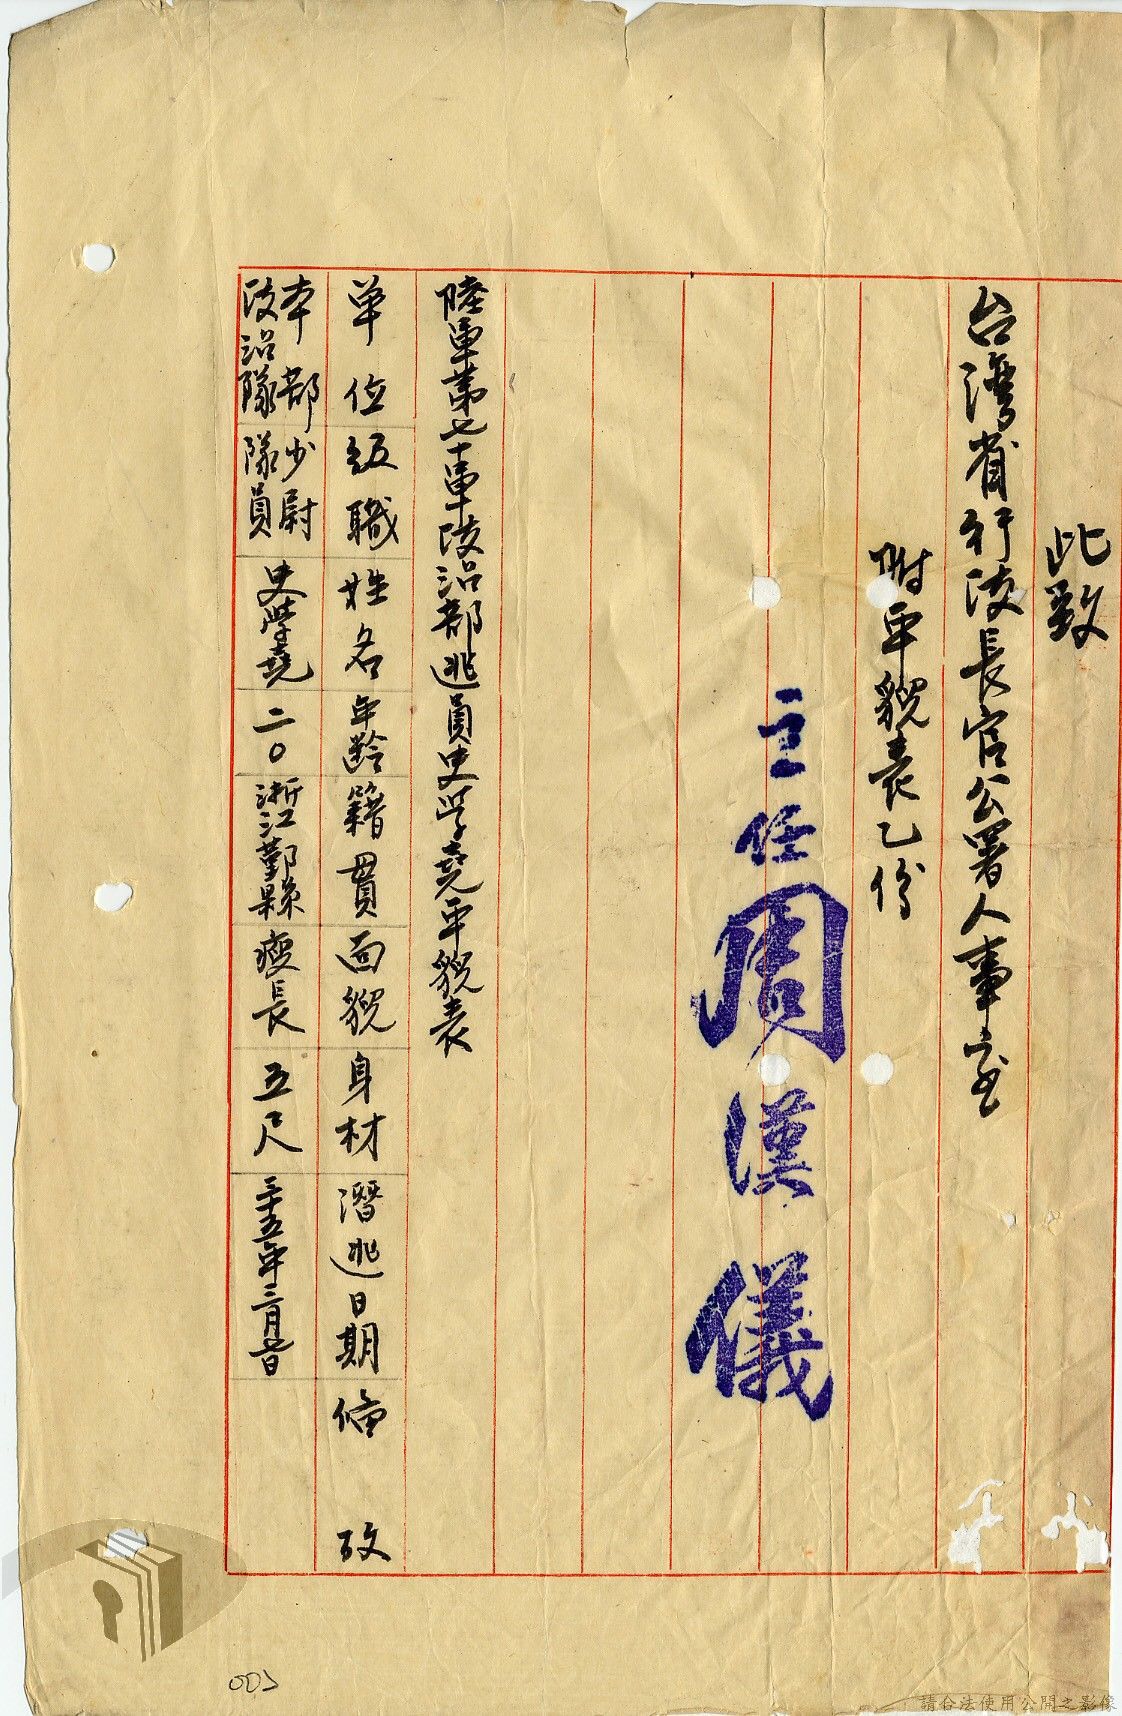 此致
台灣省行政長官公署人事室
附年貌表乙份
主任周漢儀
陸軍第七十軍政治部逃員史學堯年貌表
單位 級職 姓名 年齡 籍貫 面貌 身材 潛逃日期 備攷
本部政治隊 少尉隊員 史學堯 二〇 浙江鄞縣 瘦長 五尺 三十五年三月 日
請合法使用公開之影像